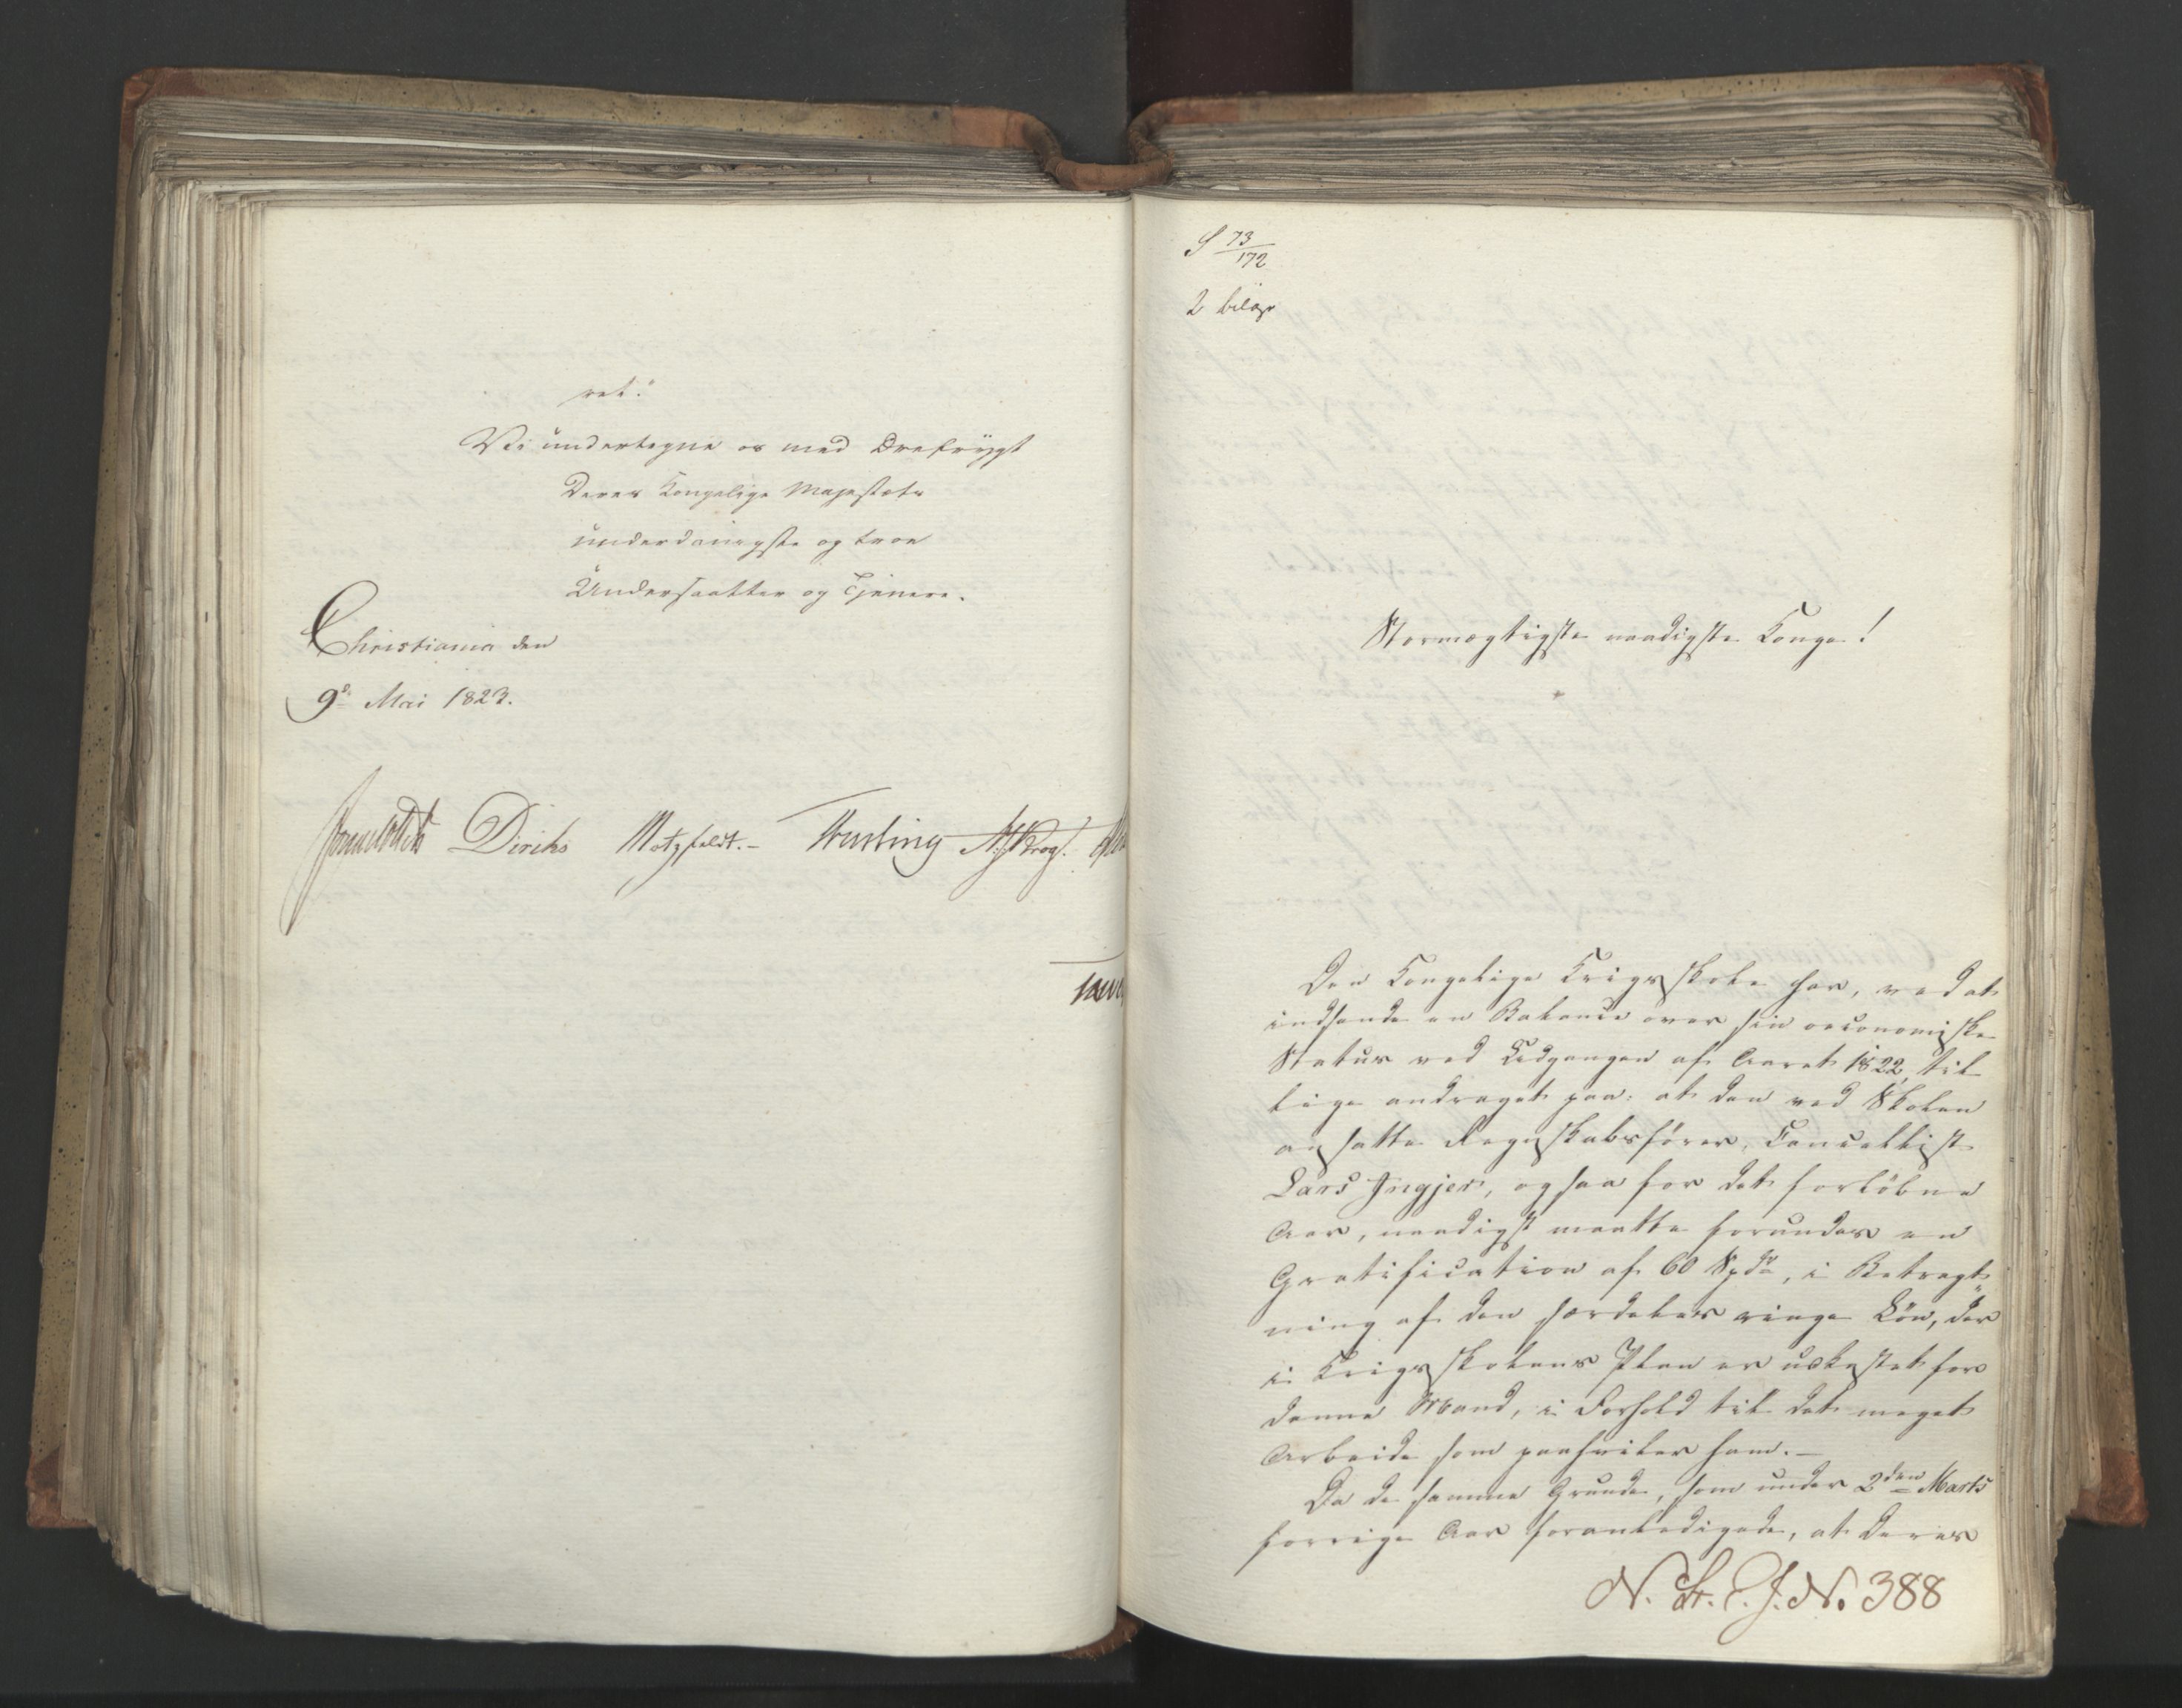 ret."
Vi undertegne os med Ærefrÿgt
Deres Kongelige Majestæts
underdanigste og troe
Undersaatter og Tjenere.
Christiania den
9de Mai 1823.
Sommerhielm Diriks Motzfeldt.- Treschow Krog.
S 73/172
2 bilage
Stormægtigste naadigste Konge!
Den Kongelige Krigsskole har, ved at
indsende en Balance over sin oeconomiske
Status ved Udgangen af Aaret 1822, til
lige andraget paa: at den ved Skolen
ansatte Regnskabsfører, Cancellist
Lars Ingjer, ogsaa for det forløbne
Aar, naadigst maatte forundes en
Gratification af 60 Spdr, i Betragt-
ning af den særdeles ringe Løn, der
i Krigsskolens Plan er udkastet for
denne Mand, i Forhold til det meget
Arbeide som paahviler ham.-
Da de samme Grunde, som under 2den Marts
forrige Aar foranledigede, at Deres
N. St. C. J. N. 388